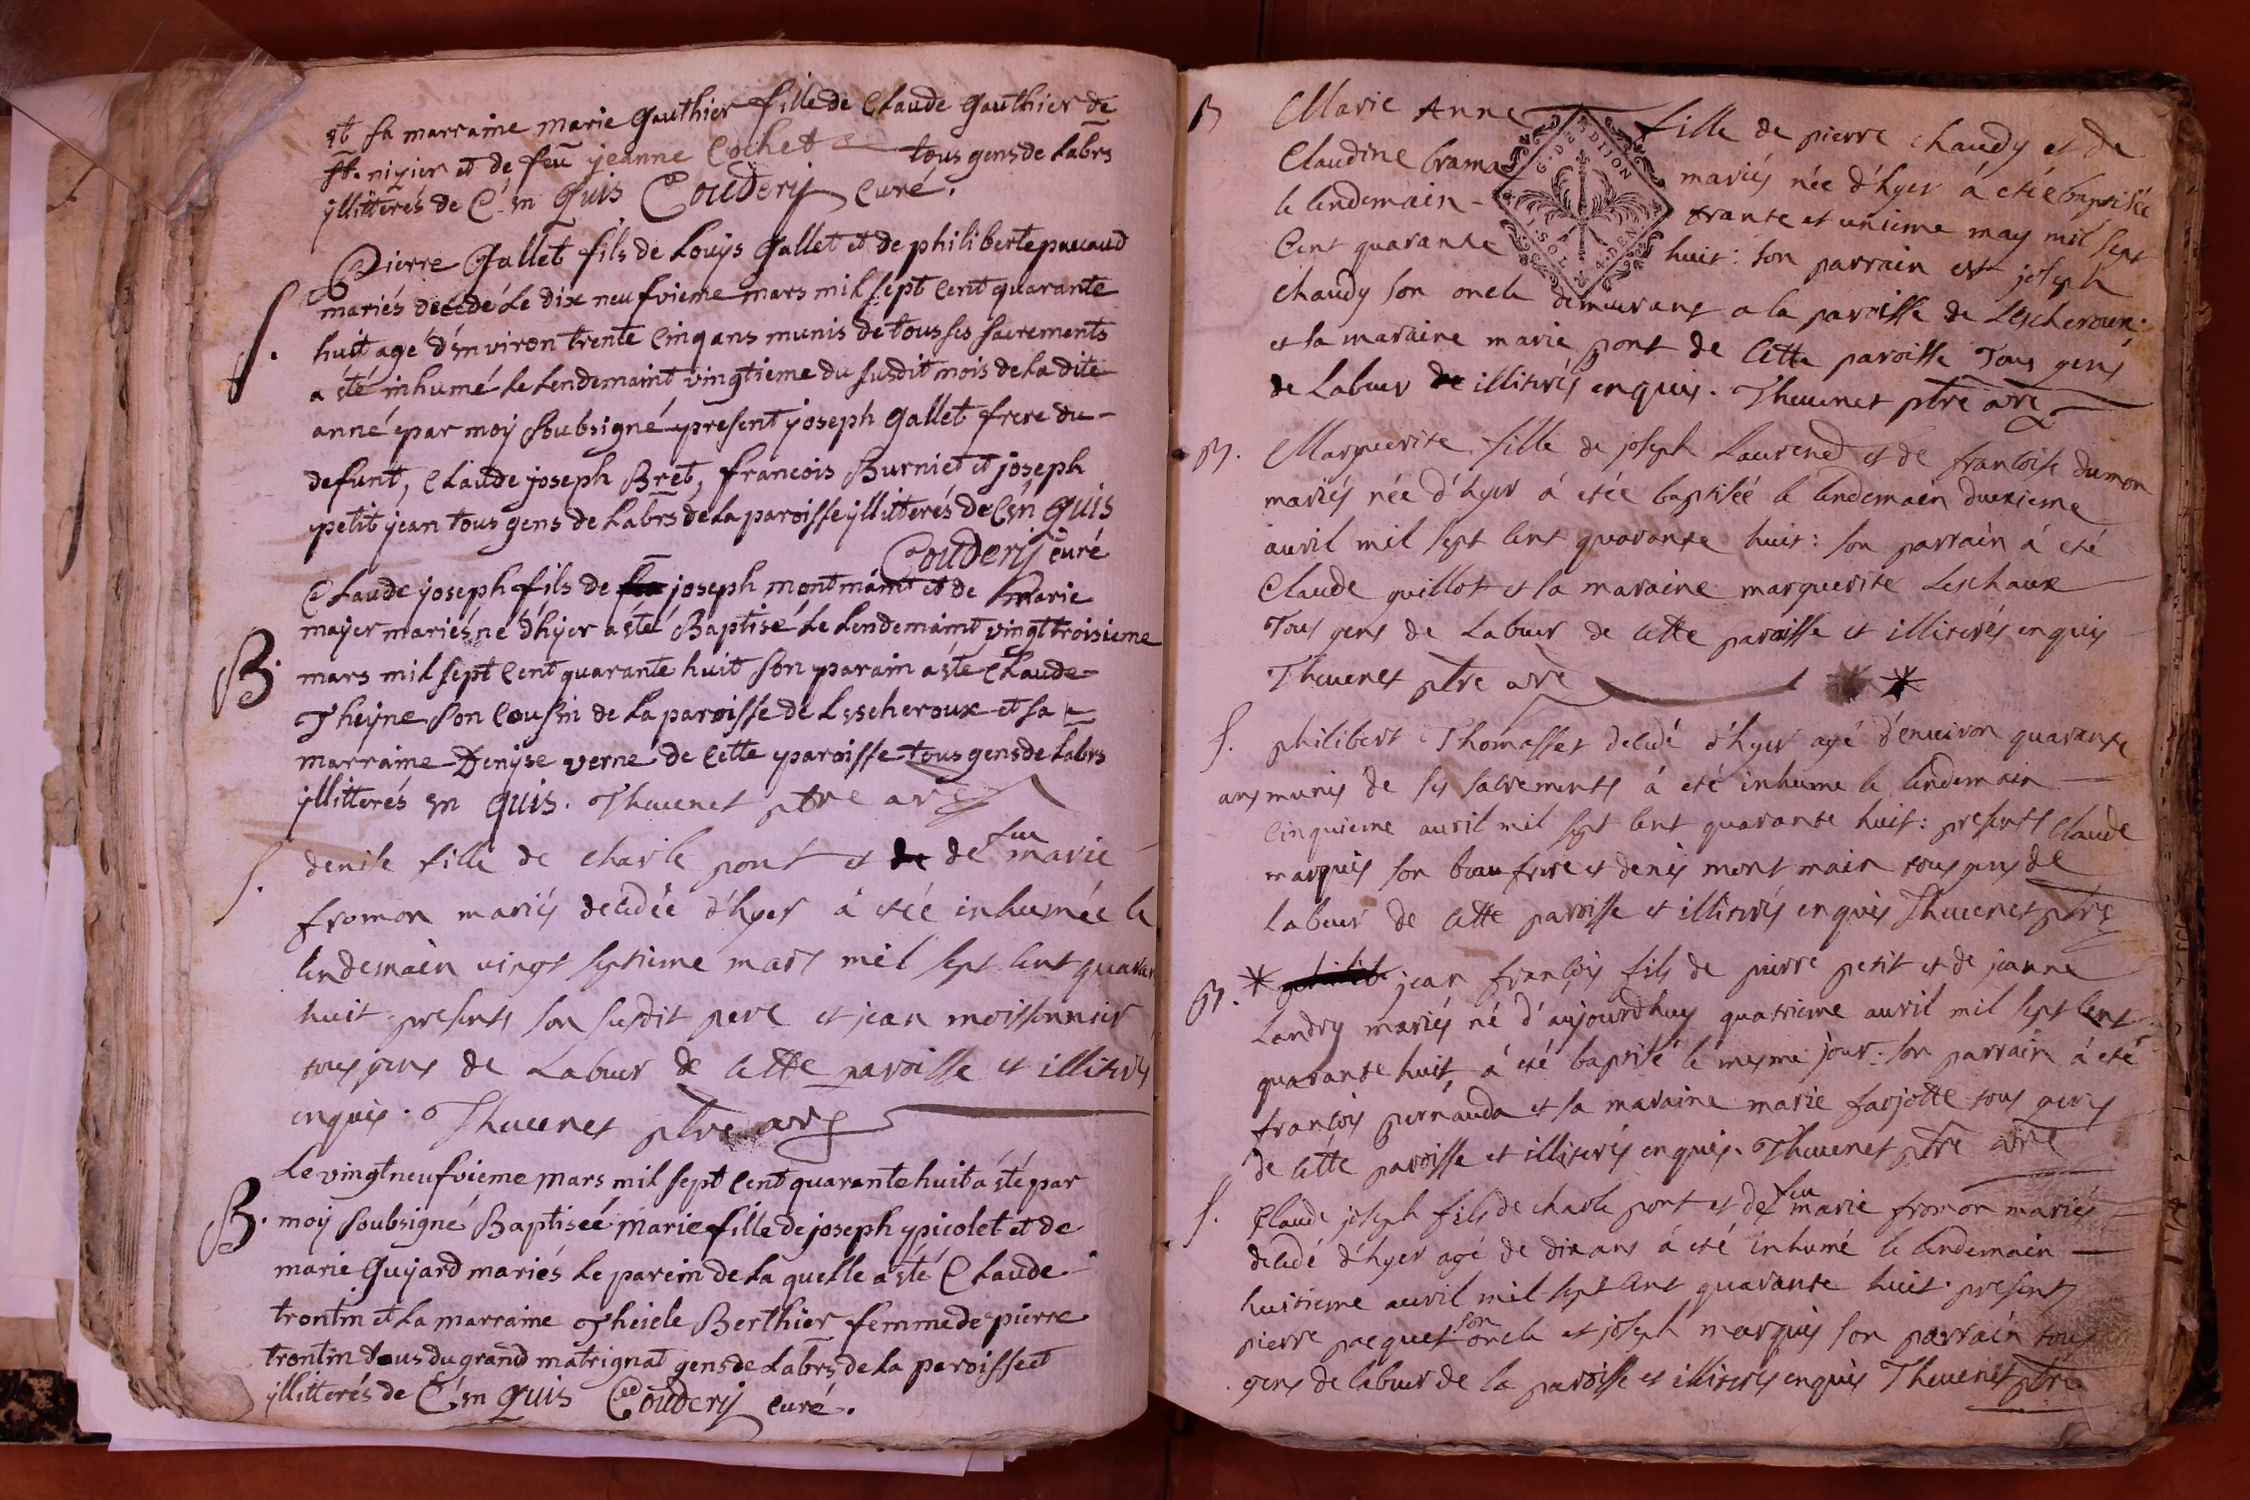 et sa marraine marie Gauthier fille de Claude Gauthier de
st. nizier et de feu jeanne Cochet tous gens de Labrs
yllitterés de C. en Quis Coudery Curé.
Pierre Gallet fils de Louÿs Gallet et de philiberte pacaud
mariés decedé Le dix neufvieme mars mil sept Cent quarante
S. huit agé d'environ trente Cinq ans munis de tous ses sacrements
a été inhumé le Lendemaint vingtieme du susdit mois de La dite
anné par moÿ Soubsigné present joseph Gallet frere du
defunt, Claude joseph Bret, francois Burniet et joseph
petit jean tous gens de Labrs de La paroisse yllitterés de C. en Quis
Coudery curé
Claude joseph fils de joseph montmaint et de Marie
maÿer mariés, né d'hÿer a été Baptisé Le Lendemaint, vingt troisieme
B. mars mil sept Cent quarante huit Son parain a été Claude
Theÿne Son Cousin de La paroisse de Lescheroux et sa
marraine Denÿse verne de Cette paroisse tous gens de Labrs
yllitterés en Quis. Theuenet ptre
S. denise fille de charle pont et de de feu marie
fromon mariés decedée d'hyer á etée inhumée le
lendemain vingt septieme mars mil sept cent
huit presents son susdit pere et jean moissonnier
tous gens de Labeur de cette paroisse et illiterés
enquis. Theuenet ptre
Le vingt neufvieme mars mil sept Cent quarante huit a été par
B. moÿ Soubsigné Baptiseé Marie fille de joseph picolet et de
marie Guÿard mariés Le parein de La quelle a été Claude
trontin et La marraine Theicle Berthier femme de pierre
trontin tous du grand matrignat gens de Labrs de La paroisse et
yllitterés de C. en Quis Coudery curé.
B Marie Anne fille de pierre chaudy et de
G. DE DIJON
Claudine brama mariés née d'hyer á etée baptisée
le lendemain trante et unieme may mil sept
Cent quarante huit: son parrain est joseph
chaudy son oncle demeurant a la paroisse de Lescheroux:
et la maraine marie pont de Cette paroisse Tous gens
de Labeur illiterés enquis. Theuenet ptre
B. Marguerite fille de joseph Laurend et de francoise dumon
mariés née d'hyer á etée baptisée le lendemain duexieme
auril mil sept Cent quarante huit: son parrain á eté
Claude guillot et la maraine marguerite Leschaux
Tous gens de Labeur de Cette paroisse et illiterés enquis
Theuenet ptre
S. philibert Thomasset decedé d'hyer agé d'enuiron quarante
ans munis de ses sacrements á eté inhumé le lendemain
Cinquieme auril mil sept Cent quarante huit: presents Claude
marquis son beau frere et denis mont main tous gens de
labeur de Cette paroisse et illiterés enquis Theuenet ptre
B. * jean françois fils de pierre petit et de jeanne
Landry mariés né d'aujourdhuy quatrieme auril mil sept Cent
quarante huit á eté baptisé le mesme jour: son parrain á eté
françois pernauda et sa maraine marie farjotte tous gens
de Cette paroisse et illiterés enquis. Theuenet ptre
S. Claude joseph fils de charle pont et de feu marie fromon mariés
decedé d'hyer agé de dix ans á eté inhumé le lendemain
huitieme auril mil sept Cent quarante huit presents
pierre pacquet son oncle et joseph marquis son parrain tous
gens de labeur de la paroisse et illiterés enquis Theuenet ptre